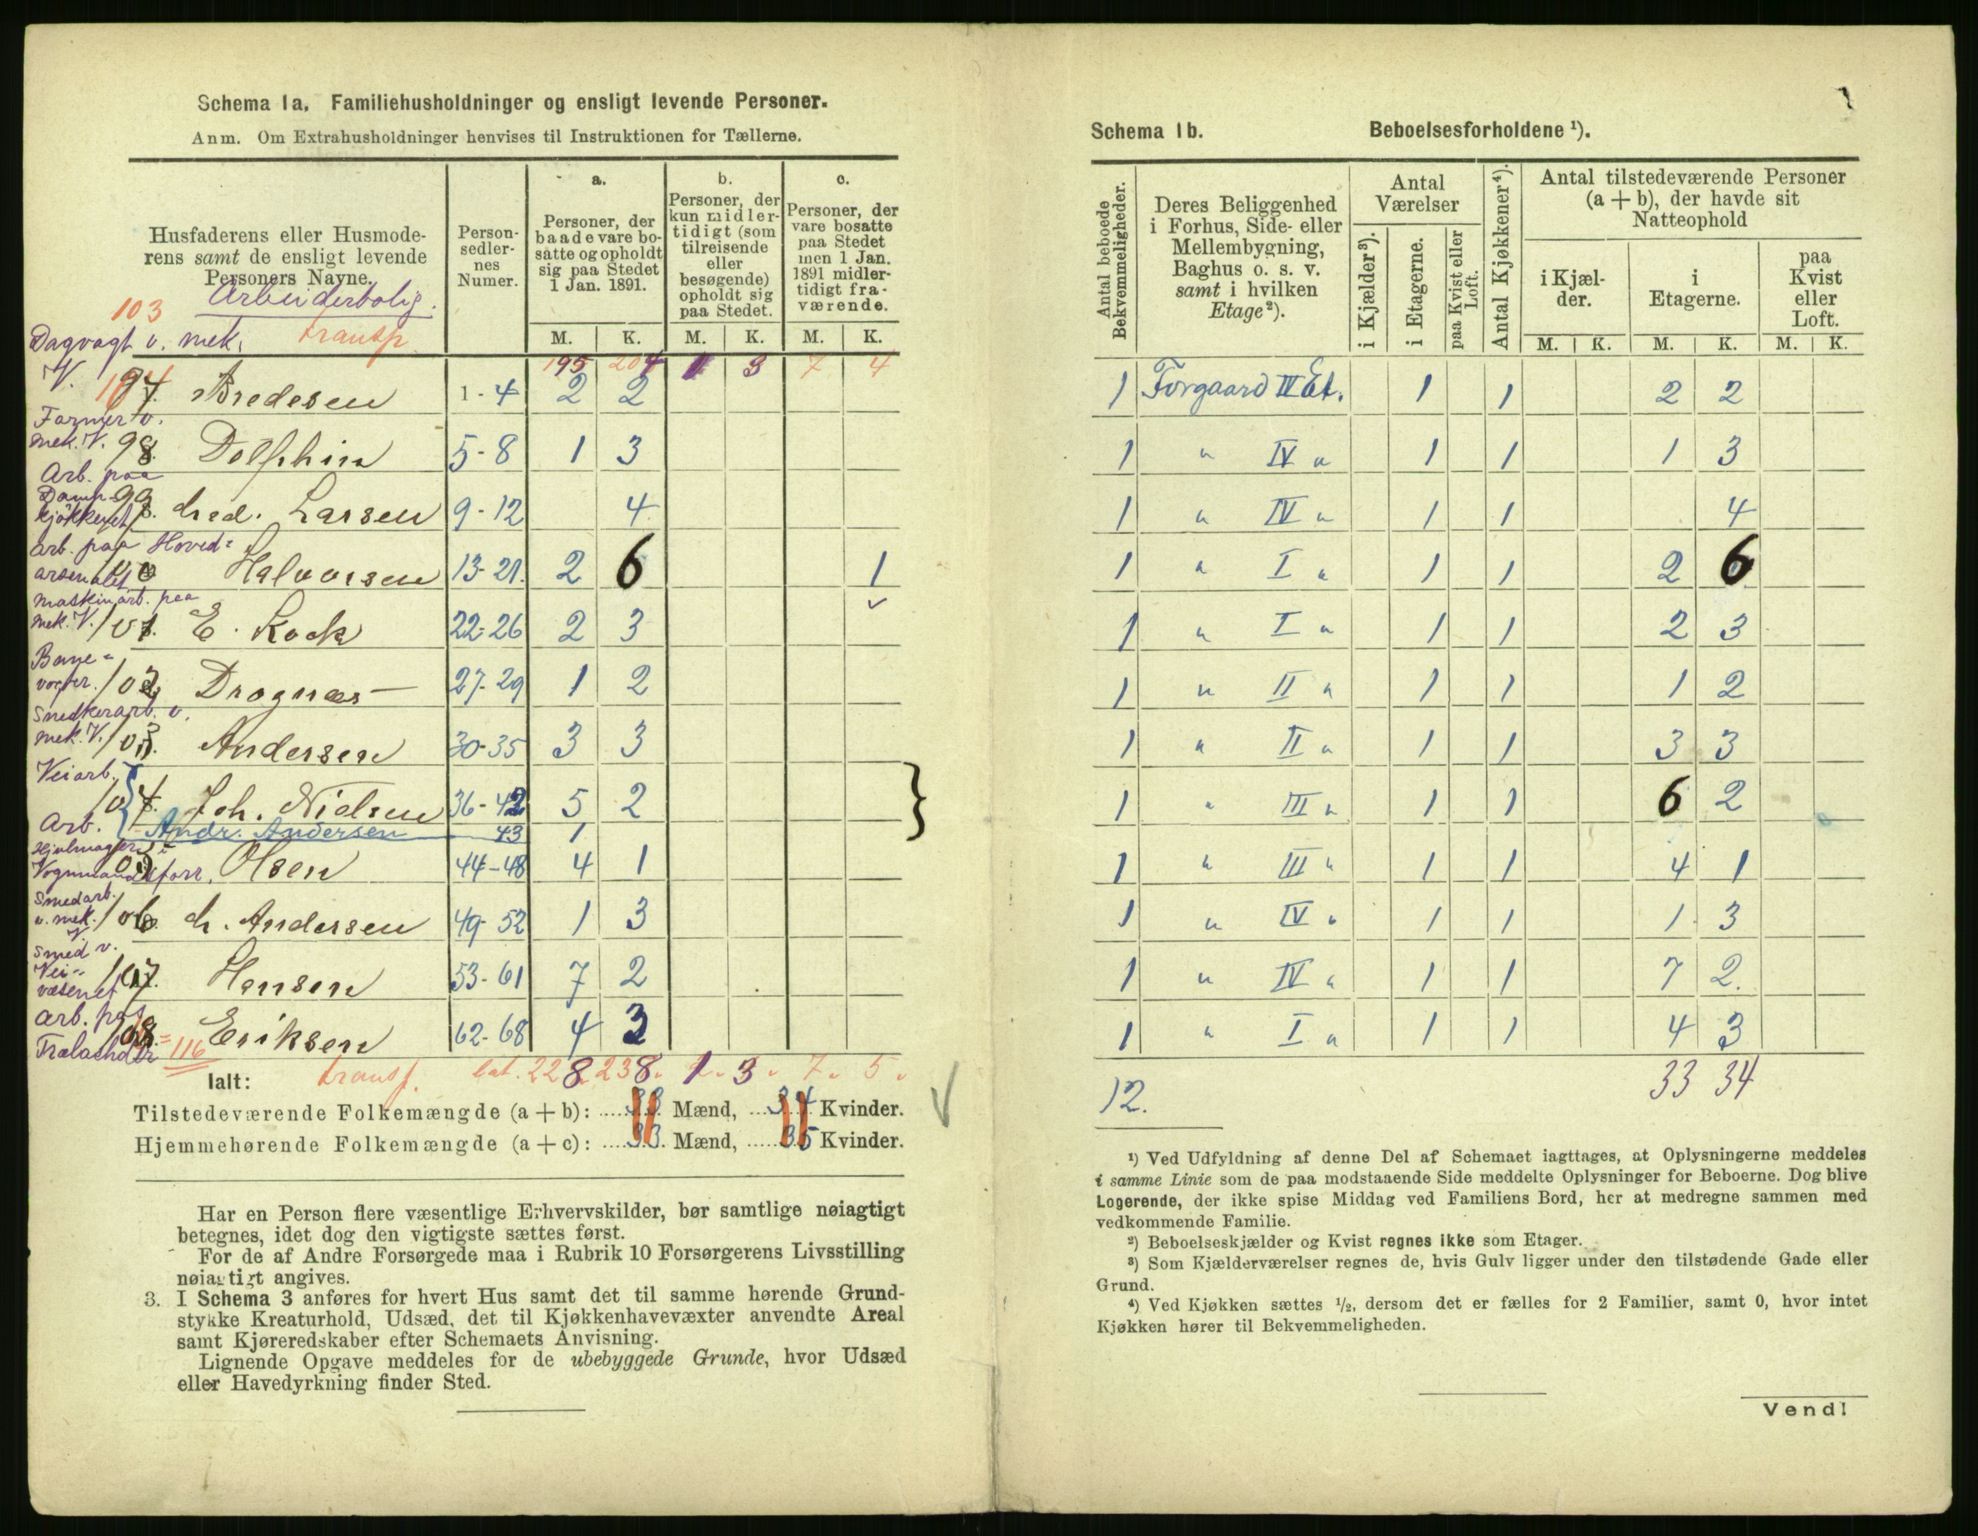 Schema 1a. Familiehusholdninger og ensligt levende Personer.
Anm. Om Extrahusholdninger henvises til Instruktionen for Tællerne.
Husfaderens eller Husmode-
rens samt de ensligt levende
Personers Navne.
Person-
sedler-
nes
Numer.
a.
Personer, der
baade vare bo-
satte og opholdt
sig paa Stedet
1 Jan. 1891.
b.
Personer, der
kun midler-
tidigt (som
tilreisende
eller
besøgende)
opholdt sig
paa Stedet.
c.
Personer, der
vare bosatte
paa Stedet
men 1 Jan.
1891 midler-
tidigt fra-
værende.
M. K. M. K. M. K.
Arbeiderbolig.
103
Dagvagt v. mek. transp.
195 204 1 3 7 4
V. 97. Bredesen 1-4 2 2
Former v.
mek. V. 98. Dolphin 5-8 1 3
Arb. paa
Damp-
kjøkkenet 99. Larsen 9-12 4
Arb. paa Hoved=
arsenalet Halvorsen 13-21. 2 6 1
Maskinarb. paa
mek. V. 101. E. Kock 22-26 2 3
Bane-
vogter. 102 Dragnæs 27-29 1 2
Snedkerarb. v.
mek. V. 103 Andersen 30-35 3 3
Veiarb.
104 Joh. Nielsen 36-42 5 2
Arb. Andr. Andersen 43 1
Hjulmager i
Vognmandsforr. Olsen 44-48 4 1
Smedarb.
v. mek. V. 106 Andersen 49-52 1 3
Smed v.
Vei-
væsenet 107. Hansen 53-61 7 2
Arb. paa
108. =116 Eriksen 62-68 4 3
Ialt: transp. 228 238 1 3 7 5
Tilstedeværende Folkemængde (a + b): 33 Mænd, 34 Kvinder.
Hjemmehørende Folkemængde (a + c): 33 Mænd, 35 Kvinder.
Har en Person flere væsentlige Erhvervskilder, bør samtlige nøiagtigt
betegnes, idet dog den vigtigste sættes først.
For de af Andre Forsørgede maa i Rubrik 10 Forsørgerens Livsstilling
nøiagtigt angives.
3. I Schema 3 anføres for hvert Hus samt det til samme hørende Grund-
stykke Kreaturhold, Udsæd, det til Kjøkkenhavevæxter anvendte Areal
samt Kjøreredskaber efter Schemaets Anvisning.
Lignende Opgave meddeles for de ubebyggede Grunde, hvor Udsæd
eller Havedyrkning finder Sted.
Schema 1b. Beboelsesforholdene ¹).
Antal beboede
Bekvemmeligheder.
Deres Beliggenhed
i Forhus, Side- eller
Mellembygning,
Baghus o. s. v.
samt i hvilken
Etage²).
Antal
Værelser
i Kjælder³).
i Etagerne.
paa Kvist eller
Loft.
Antal Kjøkkener⁴).
Antal tilstedeværende Personer
(a + b), der havde sit
Natteophold
i Kjæl-
der.
i
Etagerne.
paa
Kvist
eller
Loft.
M. K. M. K. M. K.
1 Forgaard II Et. 1 1 2 2
1 " IV " 1 1 1 3
1 " IV " 1 1 4
1 " I " 1 1 2 6
1 " I " 1 1 2 3
1 " II " 1 1 1 2
1 " II " 1 1 3 3
1 " III " 1 1 6 2
1 " III " 1 1 4 1
1 " IV " 1 1 1 3
1 " IV " 1 1 7 2.
1 " I " 1 1 4 3
12. 33 34
¹) Ved Udfyldning af denne Del af Schemaet iagttages, at Oplysningerne meddeles
i samme Linie som de paa modstaaende Side meddelte Oplysninger for Beboerne. Dog blive
Logerende, der ikke spise Middag ved Familiens Bord, her at medregne sammen med
vedkommende Familie.
²) Beboelseskjælder og Kvist regnes ikke som Etager.
³) Som Kjælderværelser regnes de, hvis Gulv ligger under den tilstødende Gade eller
Grund.
⁴) Ved Kjøkken sættes ½, dersom det er fælles for 2 Familier, samt 0, hvor intet
Kjøkken hører til Bekvemmeligheden.
Vend!